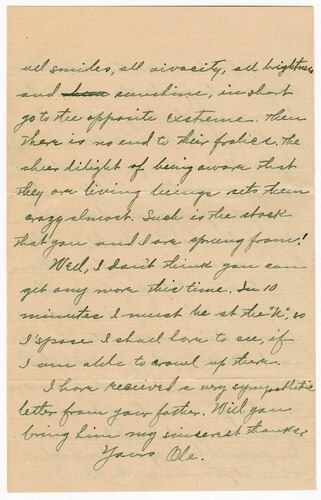 all smiles, all vivacity, all brightness
and sunshine, in short
go to the opposite extreme. Then
there is no end to their frolics. The
sheer dilight of being aware that
they are living beings sets them
crazy almost. Such is the stock
that you and I are sprung from!
Well, I don't think you can
get any more this time. In 10
minutes I must be at the "U", so
I'spose I shall have to see, if
I am able to crawl up there.
I have received a very sympathetic
letter from your father. Will you
bring him my sincerest thanks.
Yours Ole.